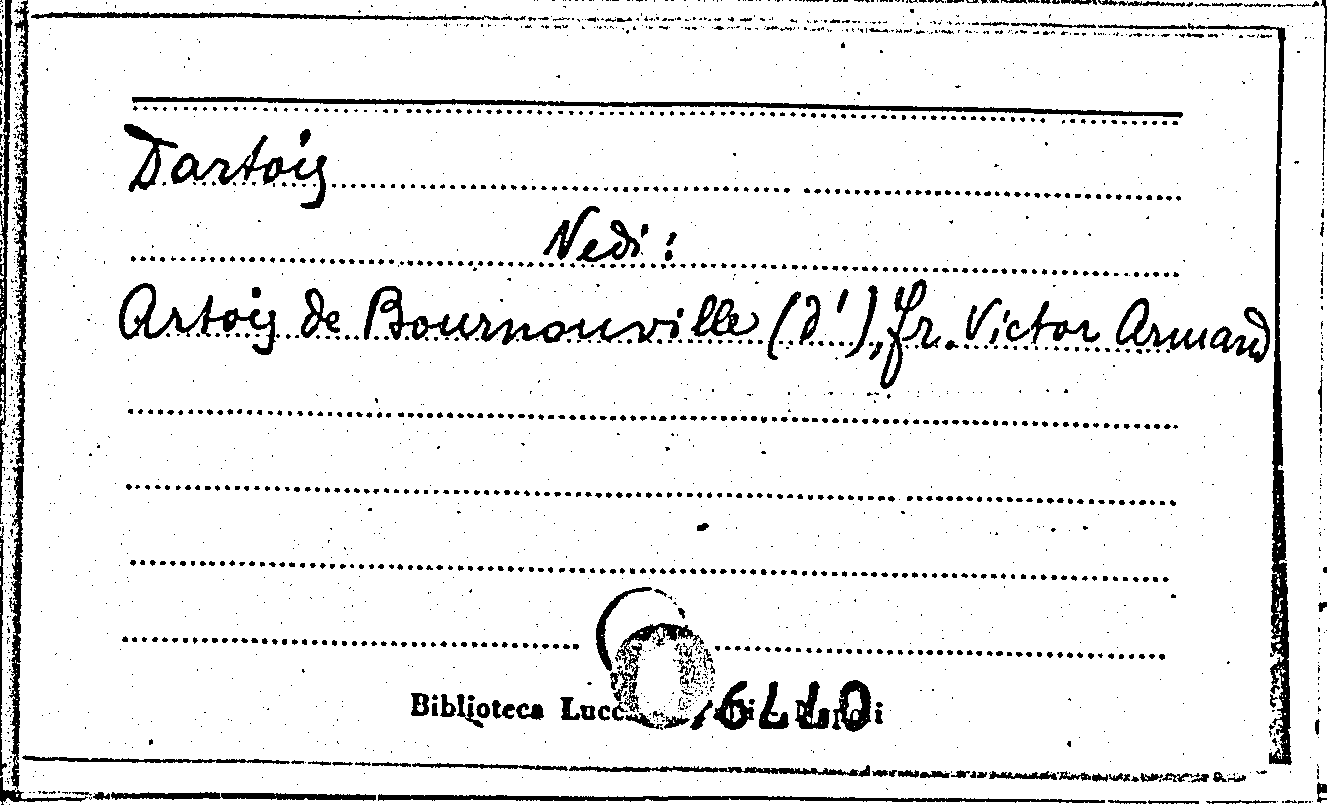 Dartois
Vedi :
Artois de Bournonville (d'), fr. Victor Armand
Biblioteca